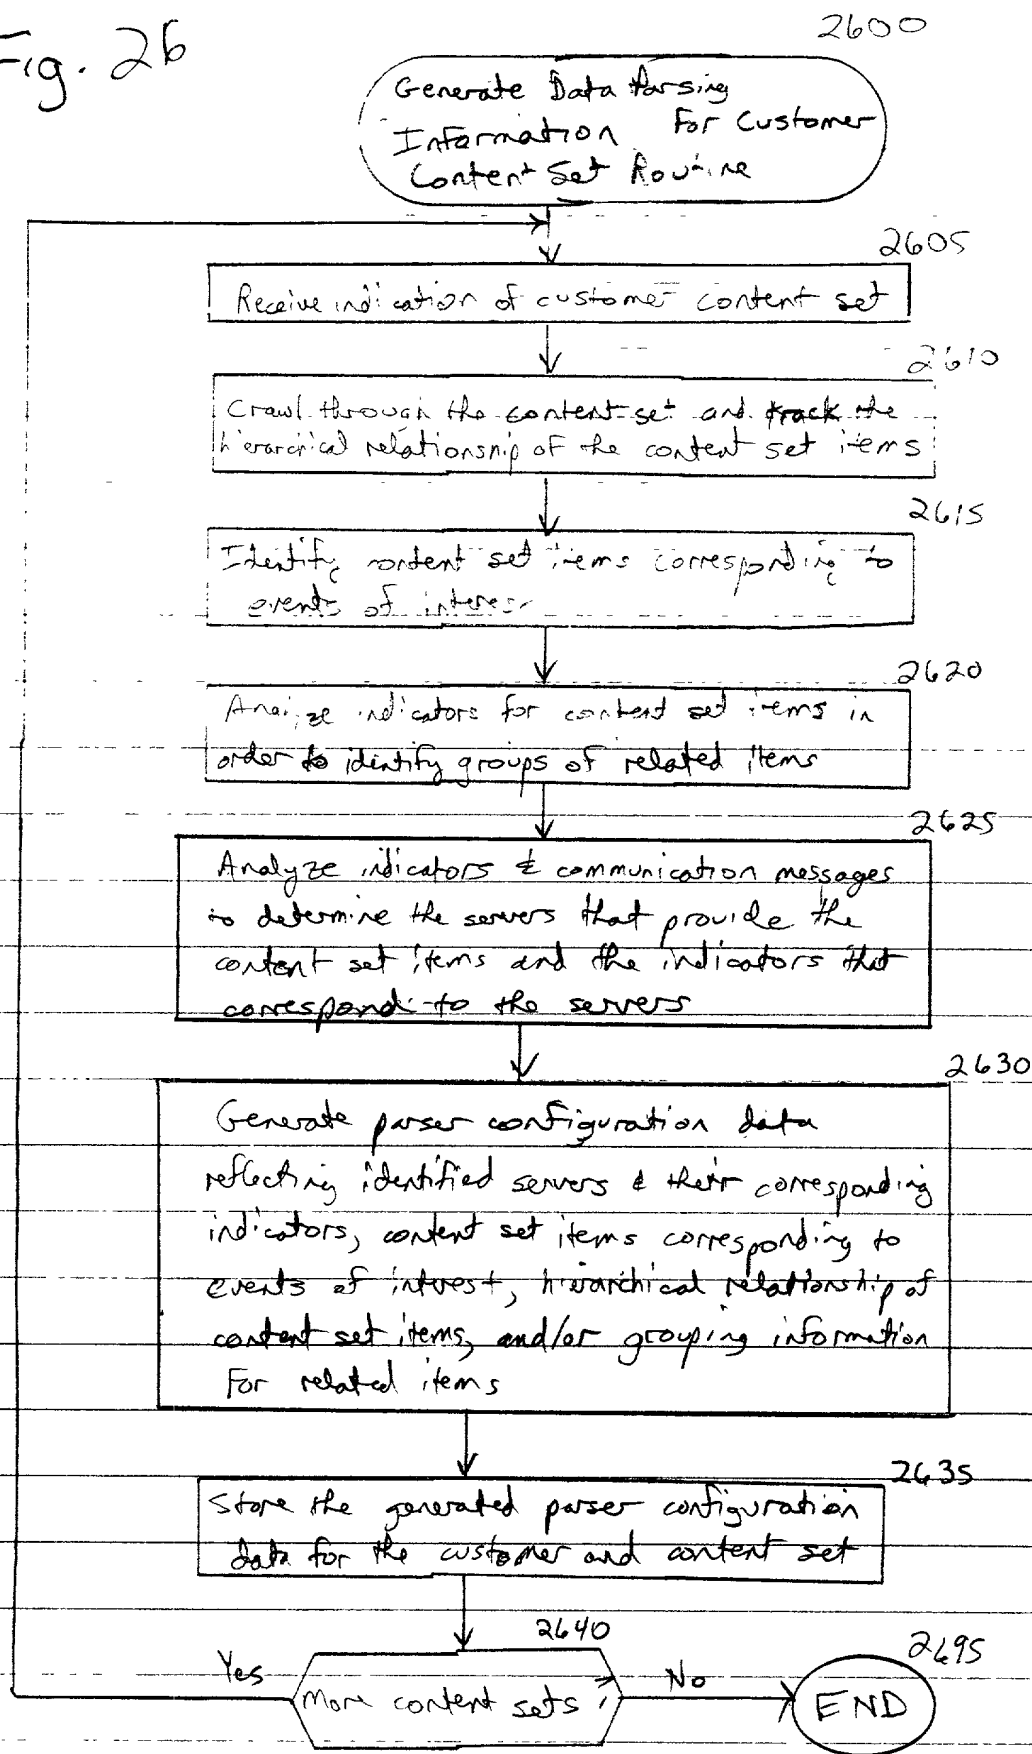 Fig. 26
2600
Generate Data Parsing
Information For Customer
Content Set Routine
2605
Receive indication of customer content set
2610
Crawl through the content set and track the
hierarchical relationship of the content set items
2615
Identify content set items corresponding to
events of interest
2620
Analyze indicators for content set items in
order to identify groups of related items
2625
Analyze indicators & communication messages
to determine the servers that provide the
content set items and the indicators that
correspond to the servers
2630
Generate parser configuration data
reflecting identified servers & their corresponding
indicators, content set items corresponding to
events of interest, hierarchical relationship of
content set items, and/or grouping information
For related items
2635
Store the generated parser configuration
data for the customer and content set
2640
2695
Yes
More content sets ?
No
END